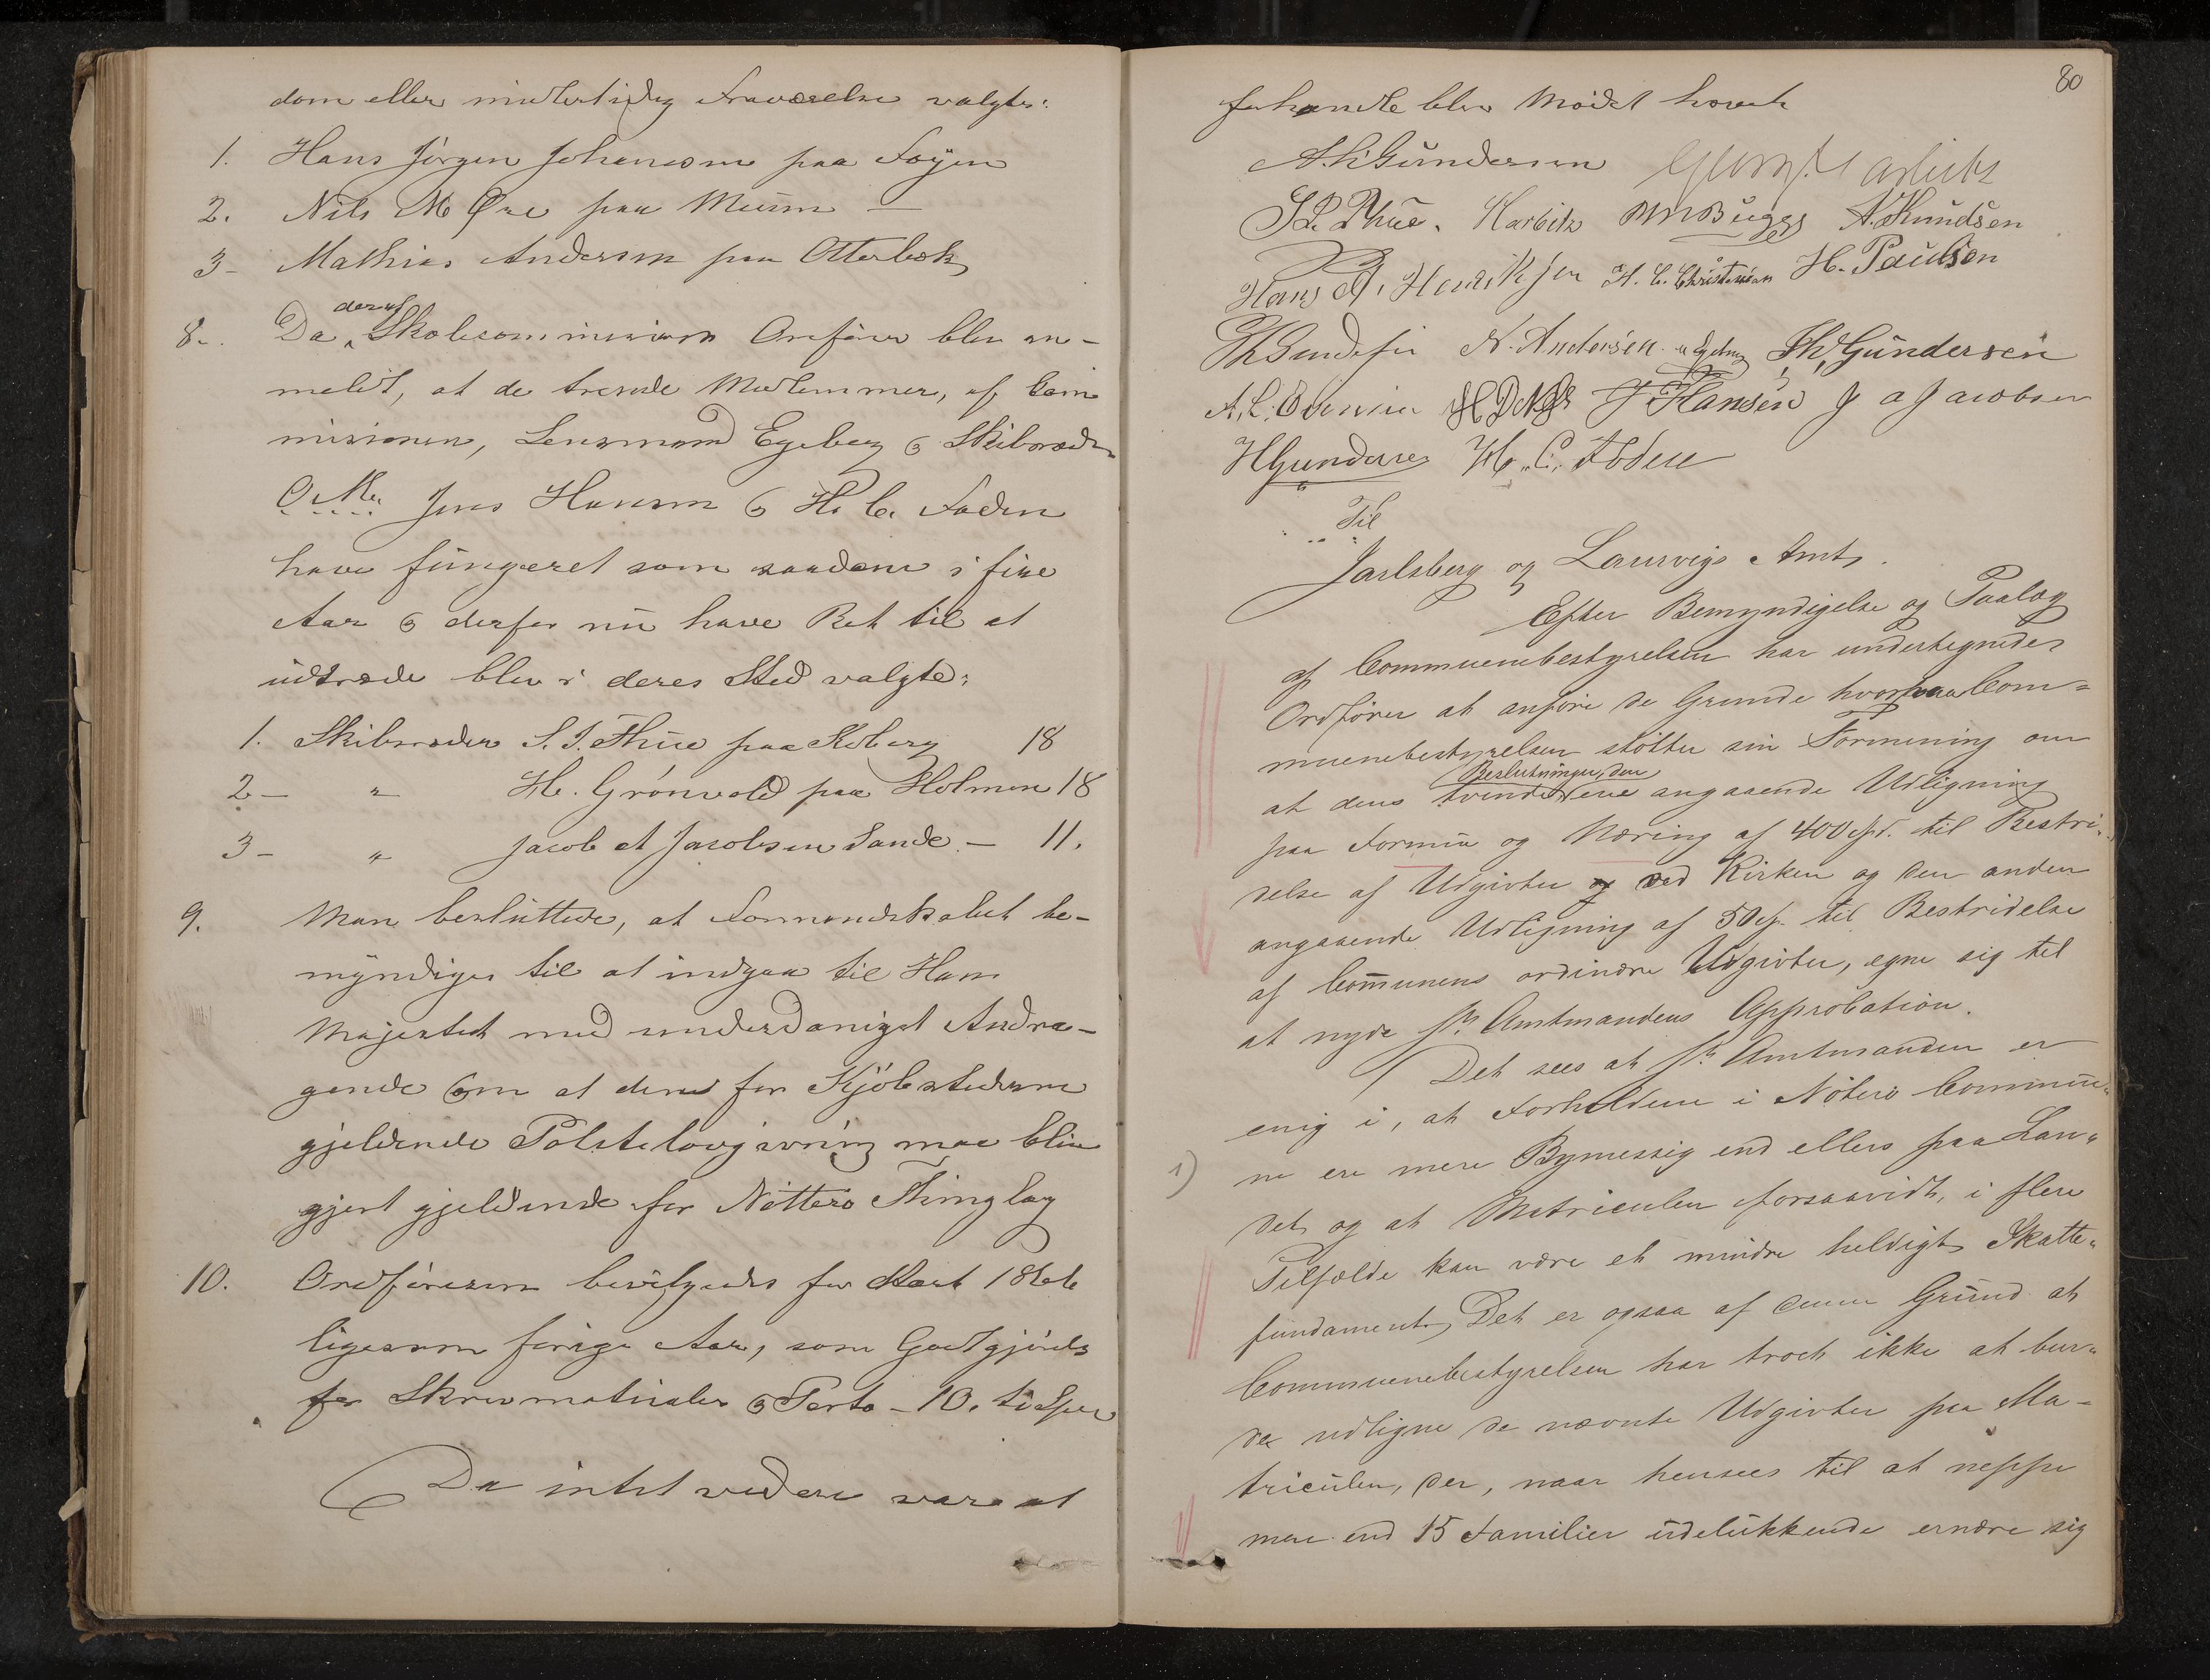 dom eller midlertidig Fraværelse valgtes:
1. Hans Jørgen Johannesen paa Føyen
2. Nils M Øre paa Meum —
3- Mathias Andersen paa Otterbæk
8. Da deraf Skolecommissionens Ordfører blev an-
meldt, at de trende Medlemmer, af Com
missionen, Lensmand Egeberg & Skibsreder
Jens Hansen & H. C. Foden
have fungeret som saadane i fire
Aar & derfor nu have Ret til at
udtræde blev i deres Sted valgte:
1. Skibsreder S. I. Thue paa 18
2 — " H. Grönvold paa Holmen 18
3 — " Jacob A Jacobsen Sande — 11.
9. Man besluttede, at Formandskabet be-
myndiges til at indgaa til Hans
Majestæt med underdanigst Andra-
gende om at den for Kjöbstæderne
gjeldende Politilovgivning maa blive
gjort gjeldende for Nøtterø Thinglag
10. Ordføreren bevilgedes for Aaret 1866
ligesom forrige Aar, som Godtgjörelse
for Skrivmaterialer & Porto — 10. ti Spd
Da intet videre var at
80
forhandle blev Mödet hævet
A. Gundersen
S. I. Thue. Harbitz Bugge A. Knudsen
Hans A. Henriksen H. C. Christensen H. Paulsen
N. Andersen Gundersen
A. C. J Hansen J A Jacobsen
H Gundersen H. C. Foden
Til
Jarlsberg og Laurvigs Amt.
Efter Bemyndigelse og Paalæg
af Communebestyrelsen har undertegnede
Ordförer at anföre de Grunde hvorpaa Com=
munebestyrelsen stötter sin Formening om
at dens tvende Beslutninger, den ene angaaende Udligning
paa Formue og Næring af 400 Spd. til Bestri-
delse af Udgivter ved Kirken og den anden
angaaende Udligning af 50 Sp. til Bestridelse
af Communens ordinære Udgivter, egne sig til
at nyde Hr. Amtmandens Approbation.
Det sees at Hr. Amtmanden er
enig i, at Forholdene i Nöterö Commu-
1) ne ere mere Bymessig end ellers paa Lan-
det, og at Matriculen forsaavidt, i flere
Tilfælde kan være et mindre heldigt Skatte-
fundament, Det er ogsaa af denne Grund at
Communebestyrelsen har troet ikke at bur-
de udligne de nævnte Udgivter paa Ma-
triculen, der, naar hensees til at neppe
mere end 15 Familier udelukkende ernære sig